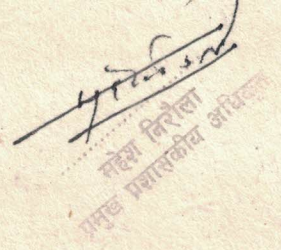 महेश निरौला
प्रमुख प्रशासकीय अधिकृत